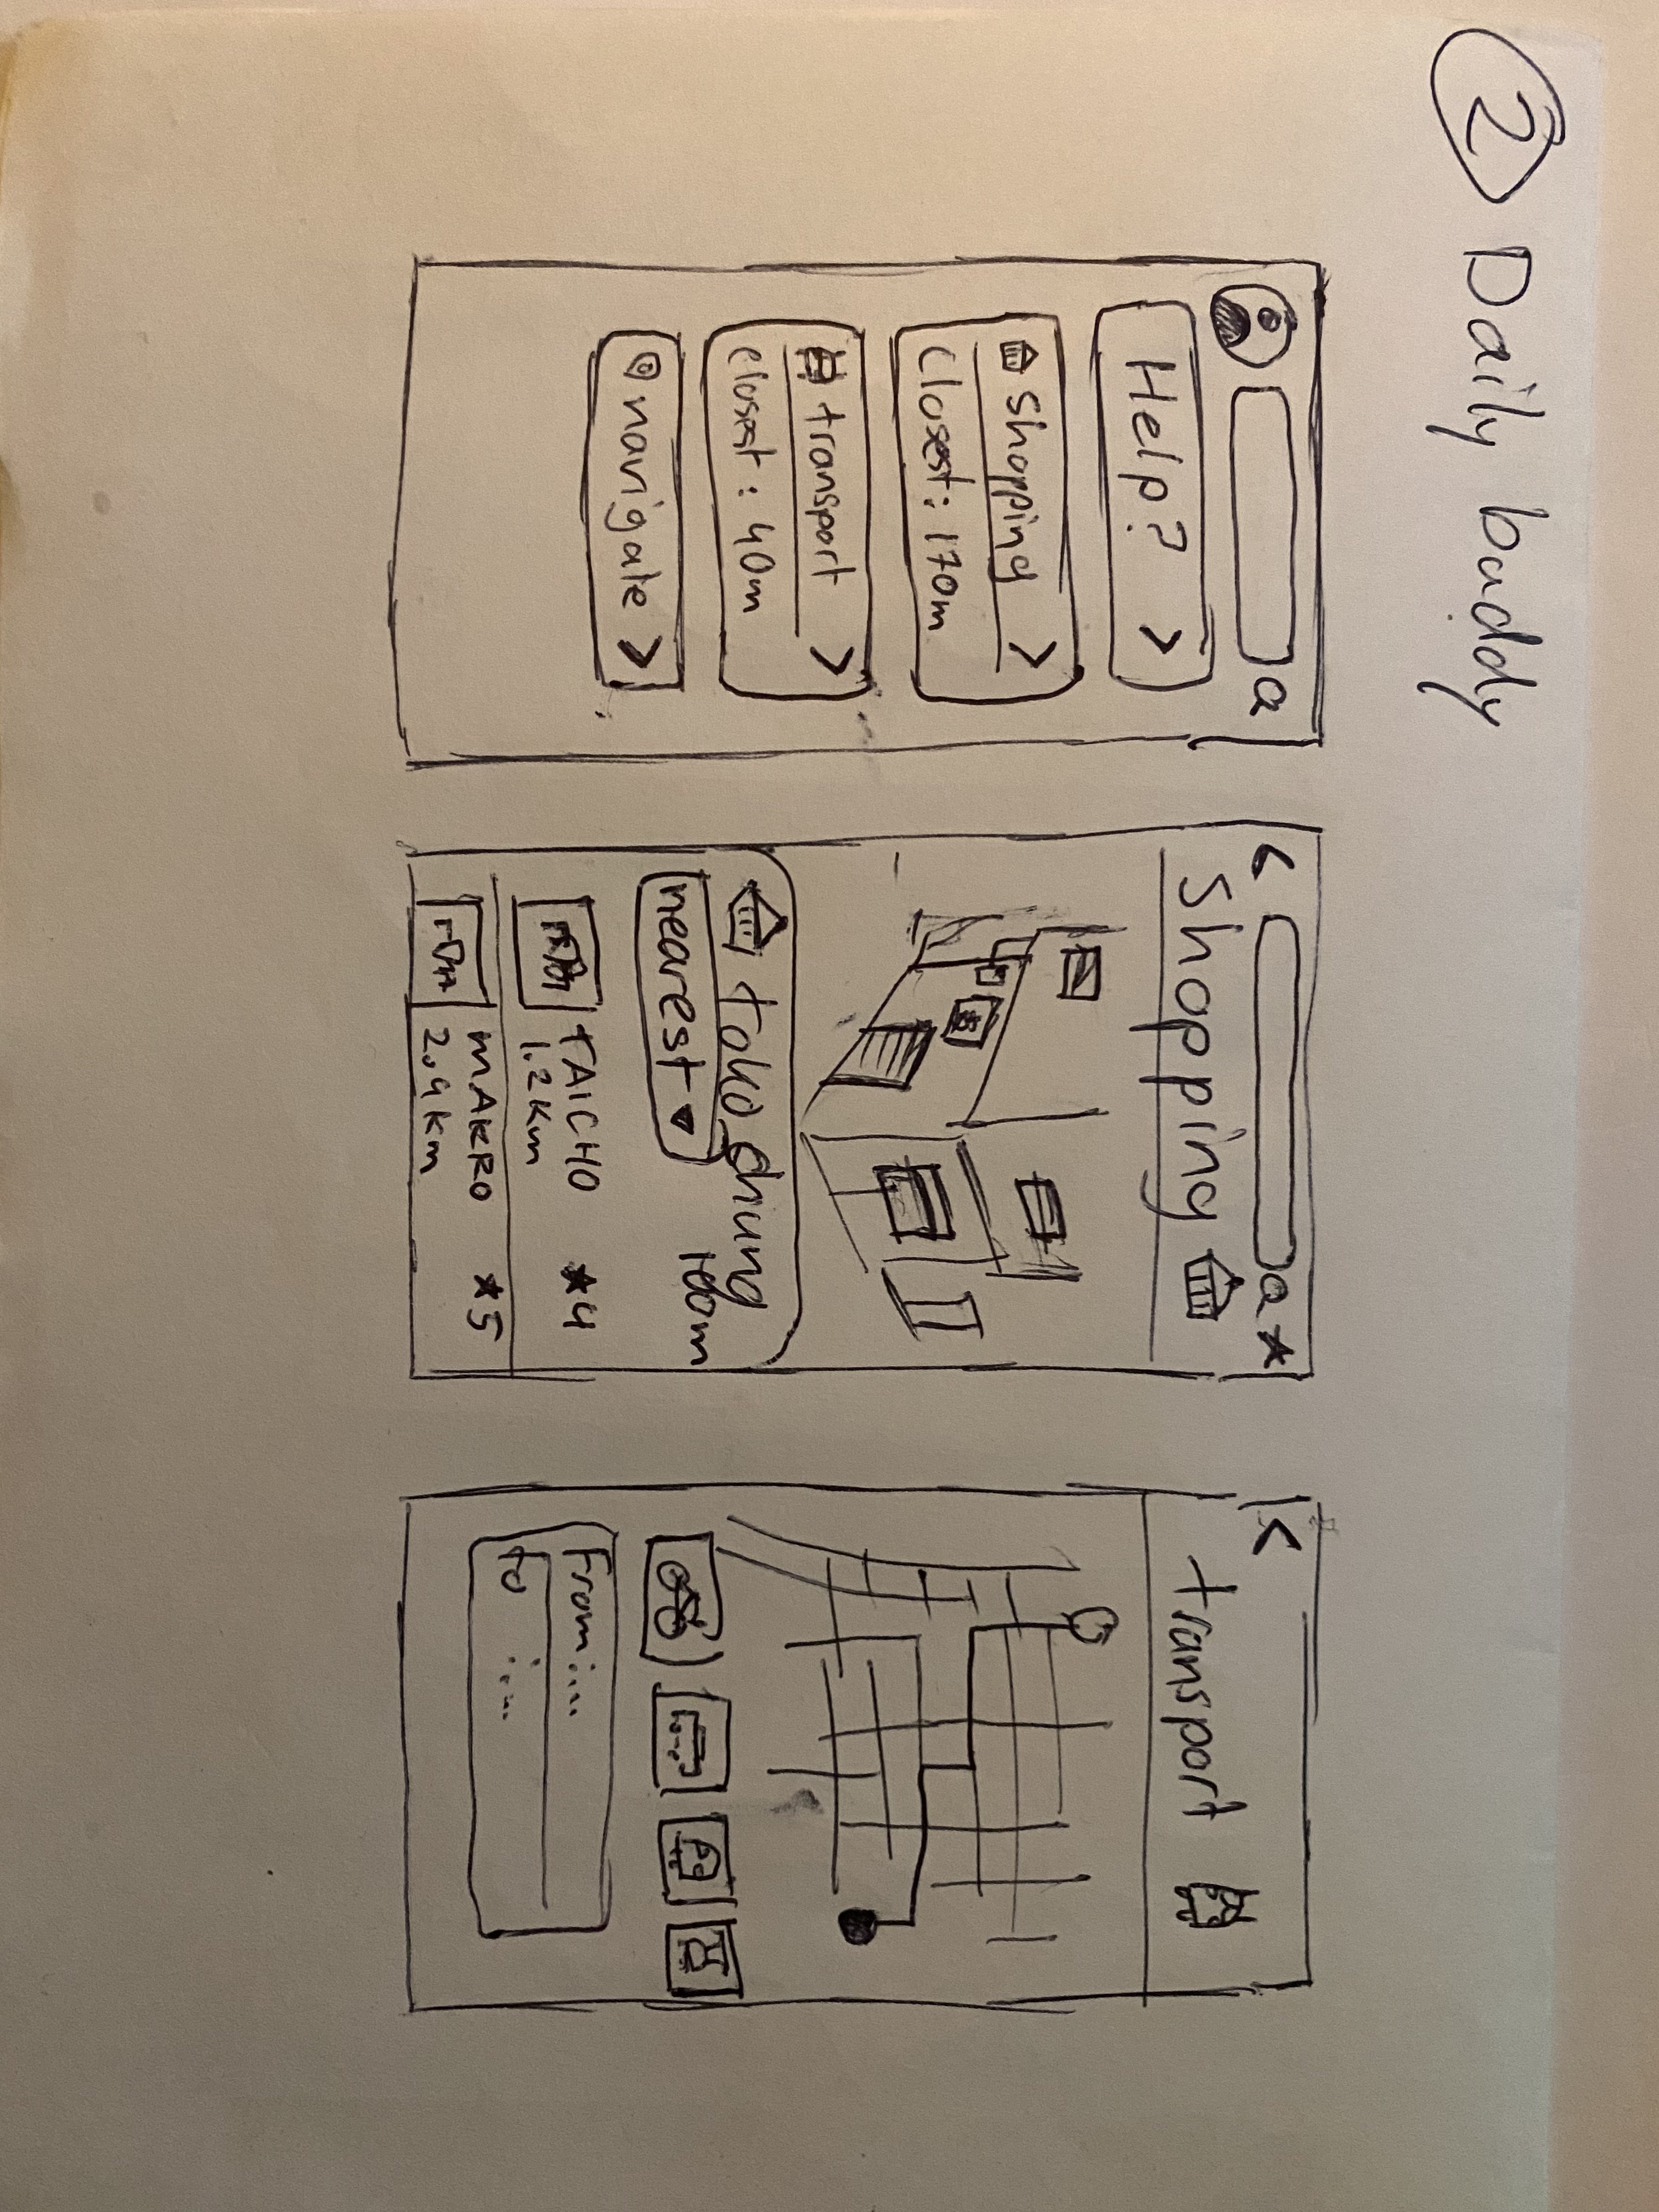 2 Daily buddy
Help? >
shopping >
Closest: 170m
transport >
closest: 40m
navigate >
<
Shopping
toko chung
nearest ▾
TAICHO ★4
1.2km
MAKRO ★5
<
transport
From:...
to :...